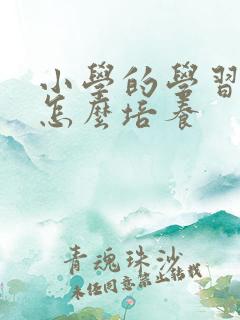 小學的學習
怎麼培養
青魂珠沙
未经同意禁止转载